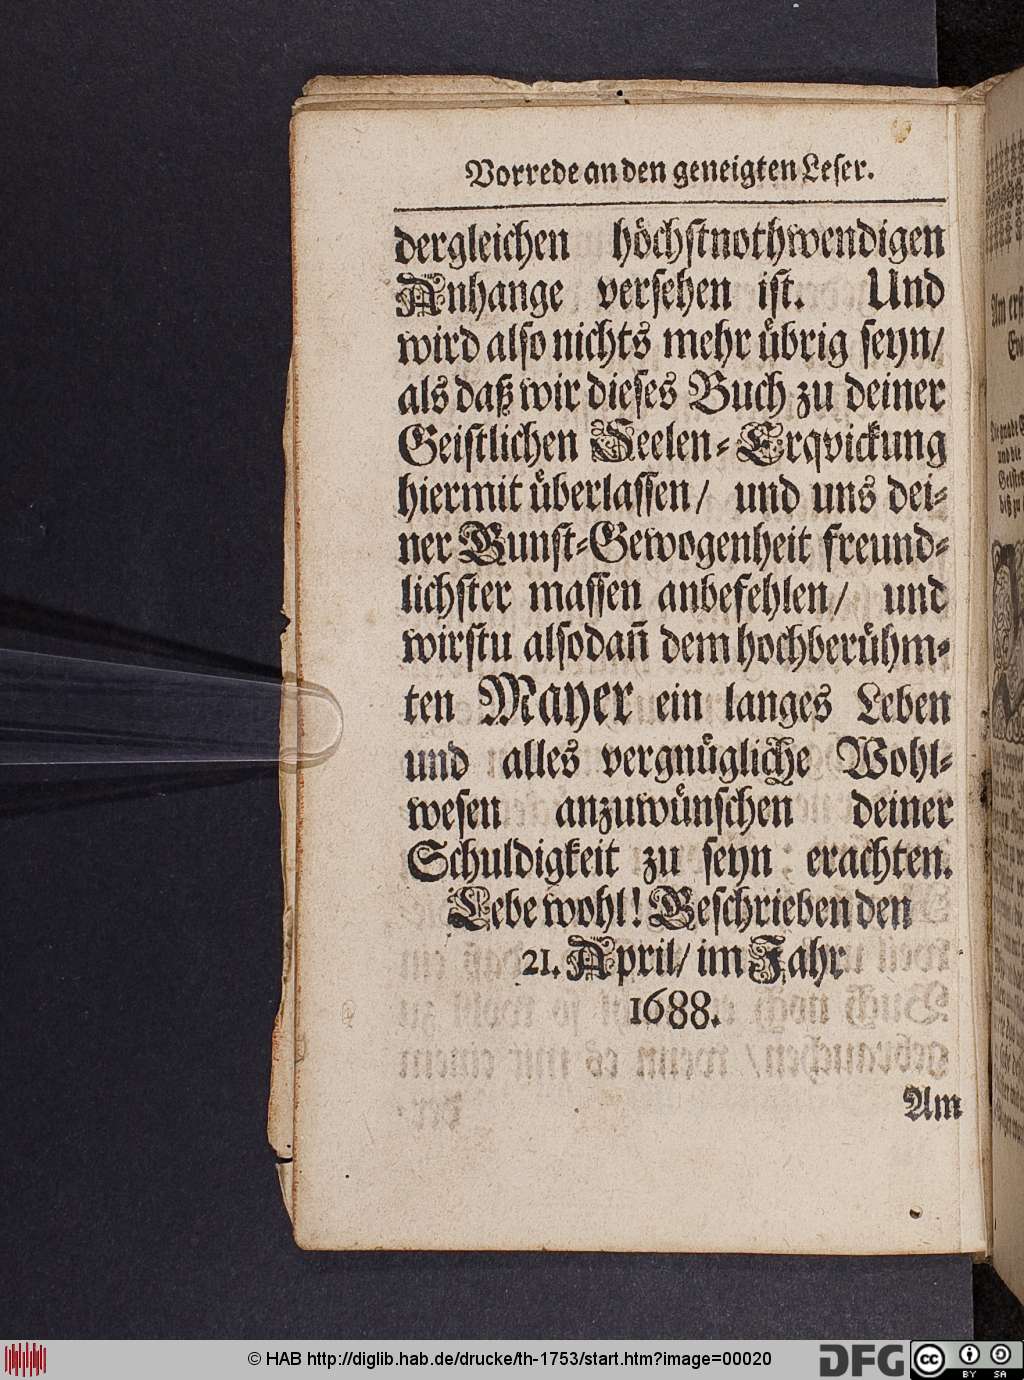 Vorrede an den geneigten Leser.
dergleichen höchstnothwendigen
Anhange versehen ist. Und
wird also nichts mehr übrig seyn/
als daß wir dieses Buch zu deiner
Geistlichen Seelen-Erqvickung
hiermit überlassen/ und uns dei-
ner Gunst-Gewogenheit freund-
lichster massen anbefehlen/ und
wirstu alsodañ dem hochberühm-
ten Mayer ein langes Leben
und alles vergnügliche Wohl-
wesen anzuwünschen deiner
Schuldigkeit zu seyn erachten.
Lebe wohl! Geschrieben den
21. April/ im Jahr
1688.
Am
Am erst
© HAB http://diglib.hab.de/drucke/th-1753/start.htm?image=00020
DFG
cc
BY SA